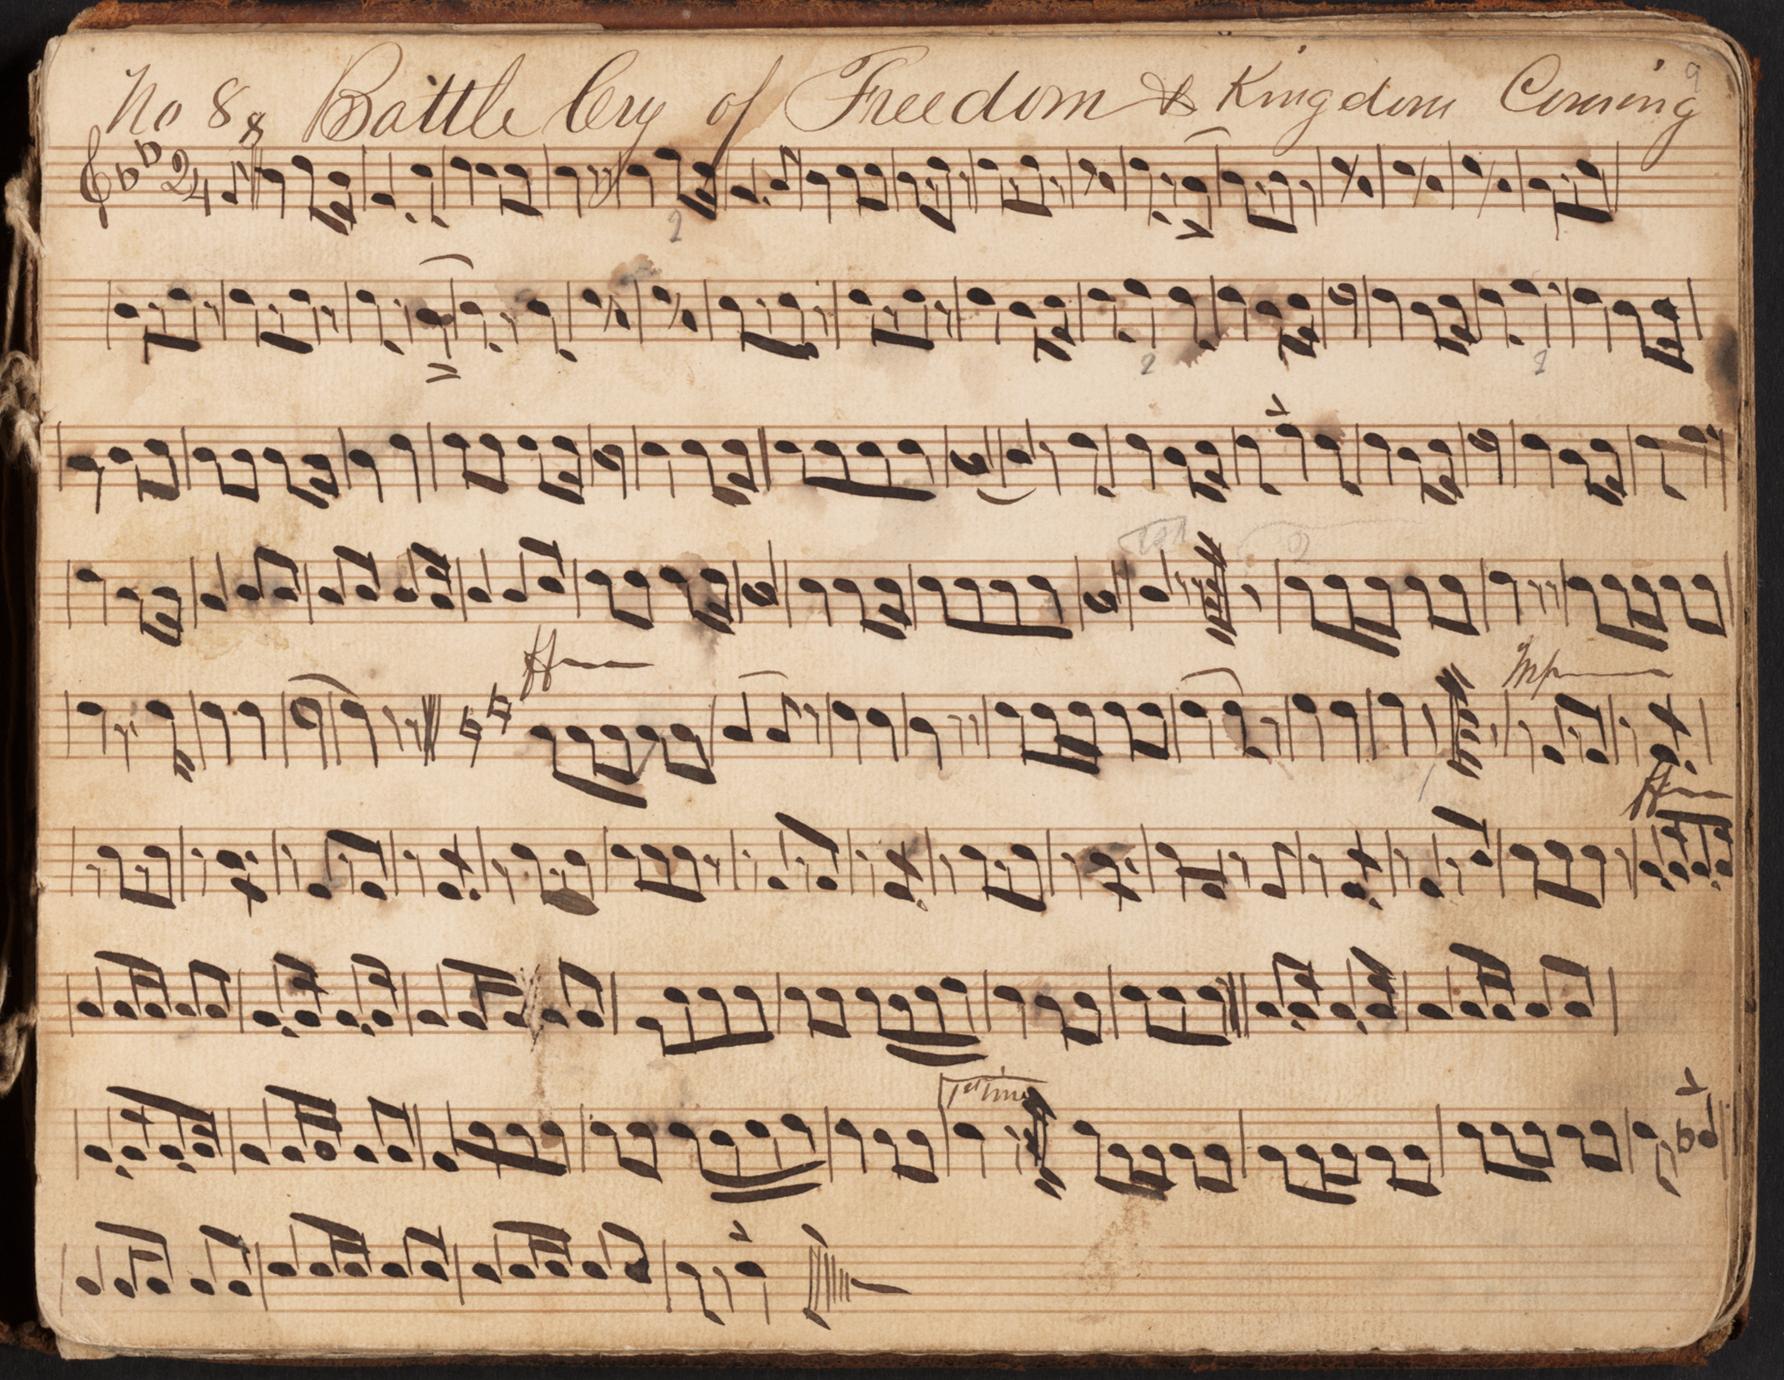 No 8 Battle Cry of Freedom & Kingdom Coming 9
2/4
2
2 2
ff
mp
ff
1st time